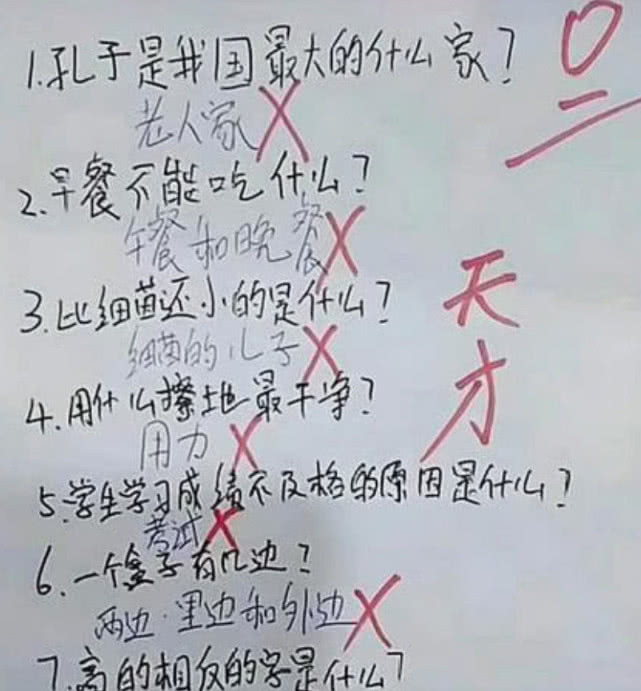 1.孔子是我国最大的什么家?
0
老人家
2.早餐不能吃什么?
午餐和晚餐
3.比细菌还小的是什么?
天才
细菌的儿子
4.用什么擦地最干净?
用力
5.学生学习成绩不及格的原因是什么?
考试
6.一个盒子有几边?
两边.里边和外边
7.高的相反的字是什么?